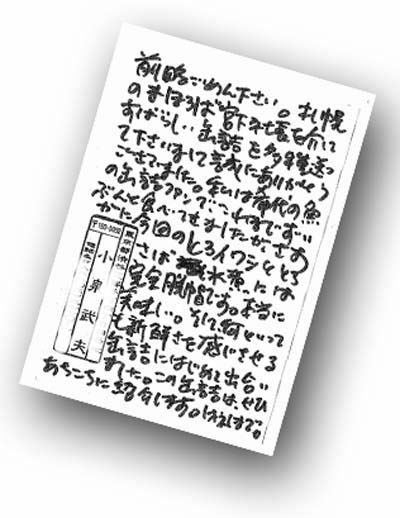 前略ごめん下さい。札幌
のまほろば宮下社長を介して
すばらしい缶詰を多種送っ
て下さいまして誠にありがとう
ございました。私は希代の魚
の缶詰ファンでこれまでずい
ぶんと食べてきましたが、さす
がに今回のとろイワシととろ
さば水煮には
完全脱帽です。本当に
美味しい。そして何といって
も新鮮さを感じさせる
缶詰にはじめて出合い
ました。この缶詰は、ぜひ
あちこちに紹介します。
東京都渋谷
小泉武夫